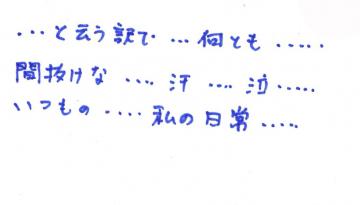 ...と云う訳で ... 何とも .....
間抜けな .... 汗 .... 泣 .....
いつもの .... 私の日常 .....